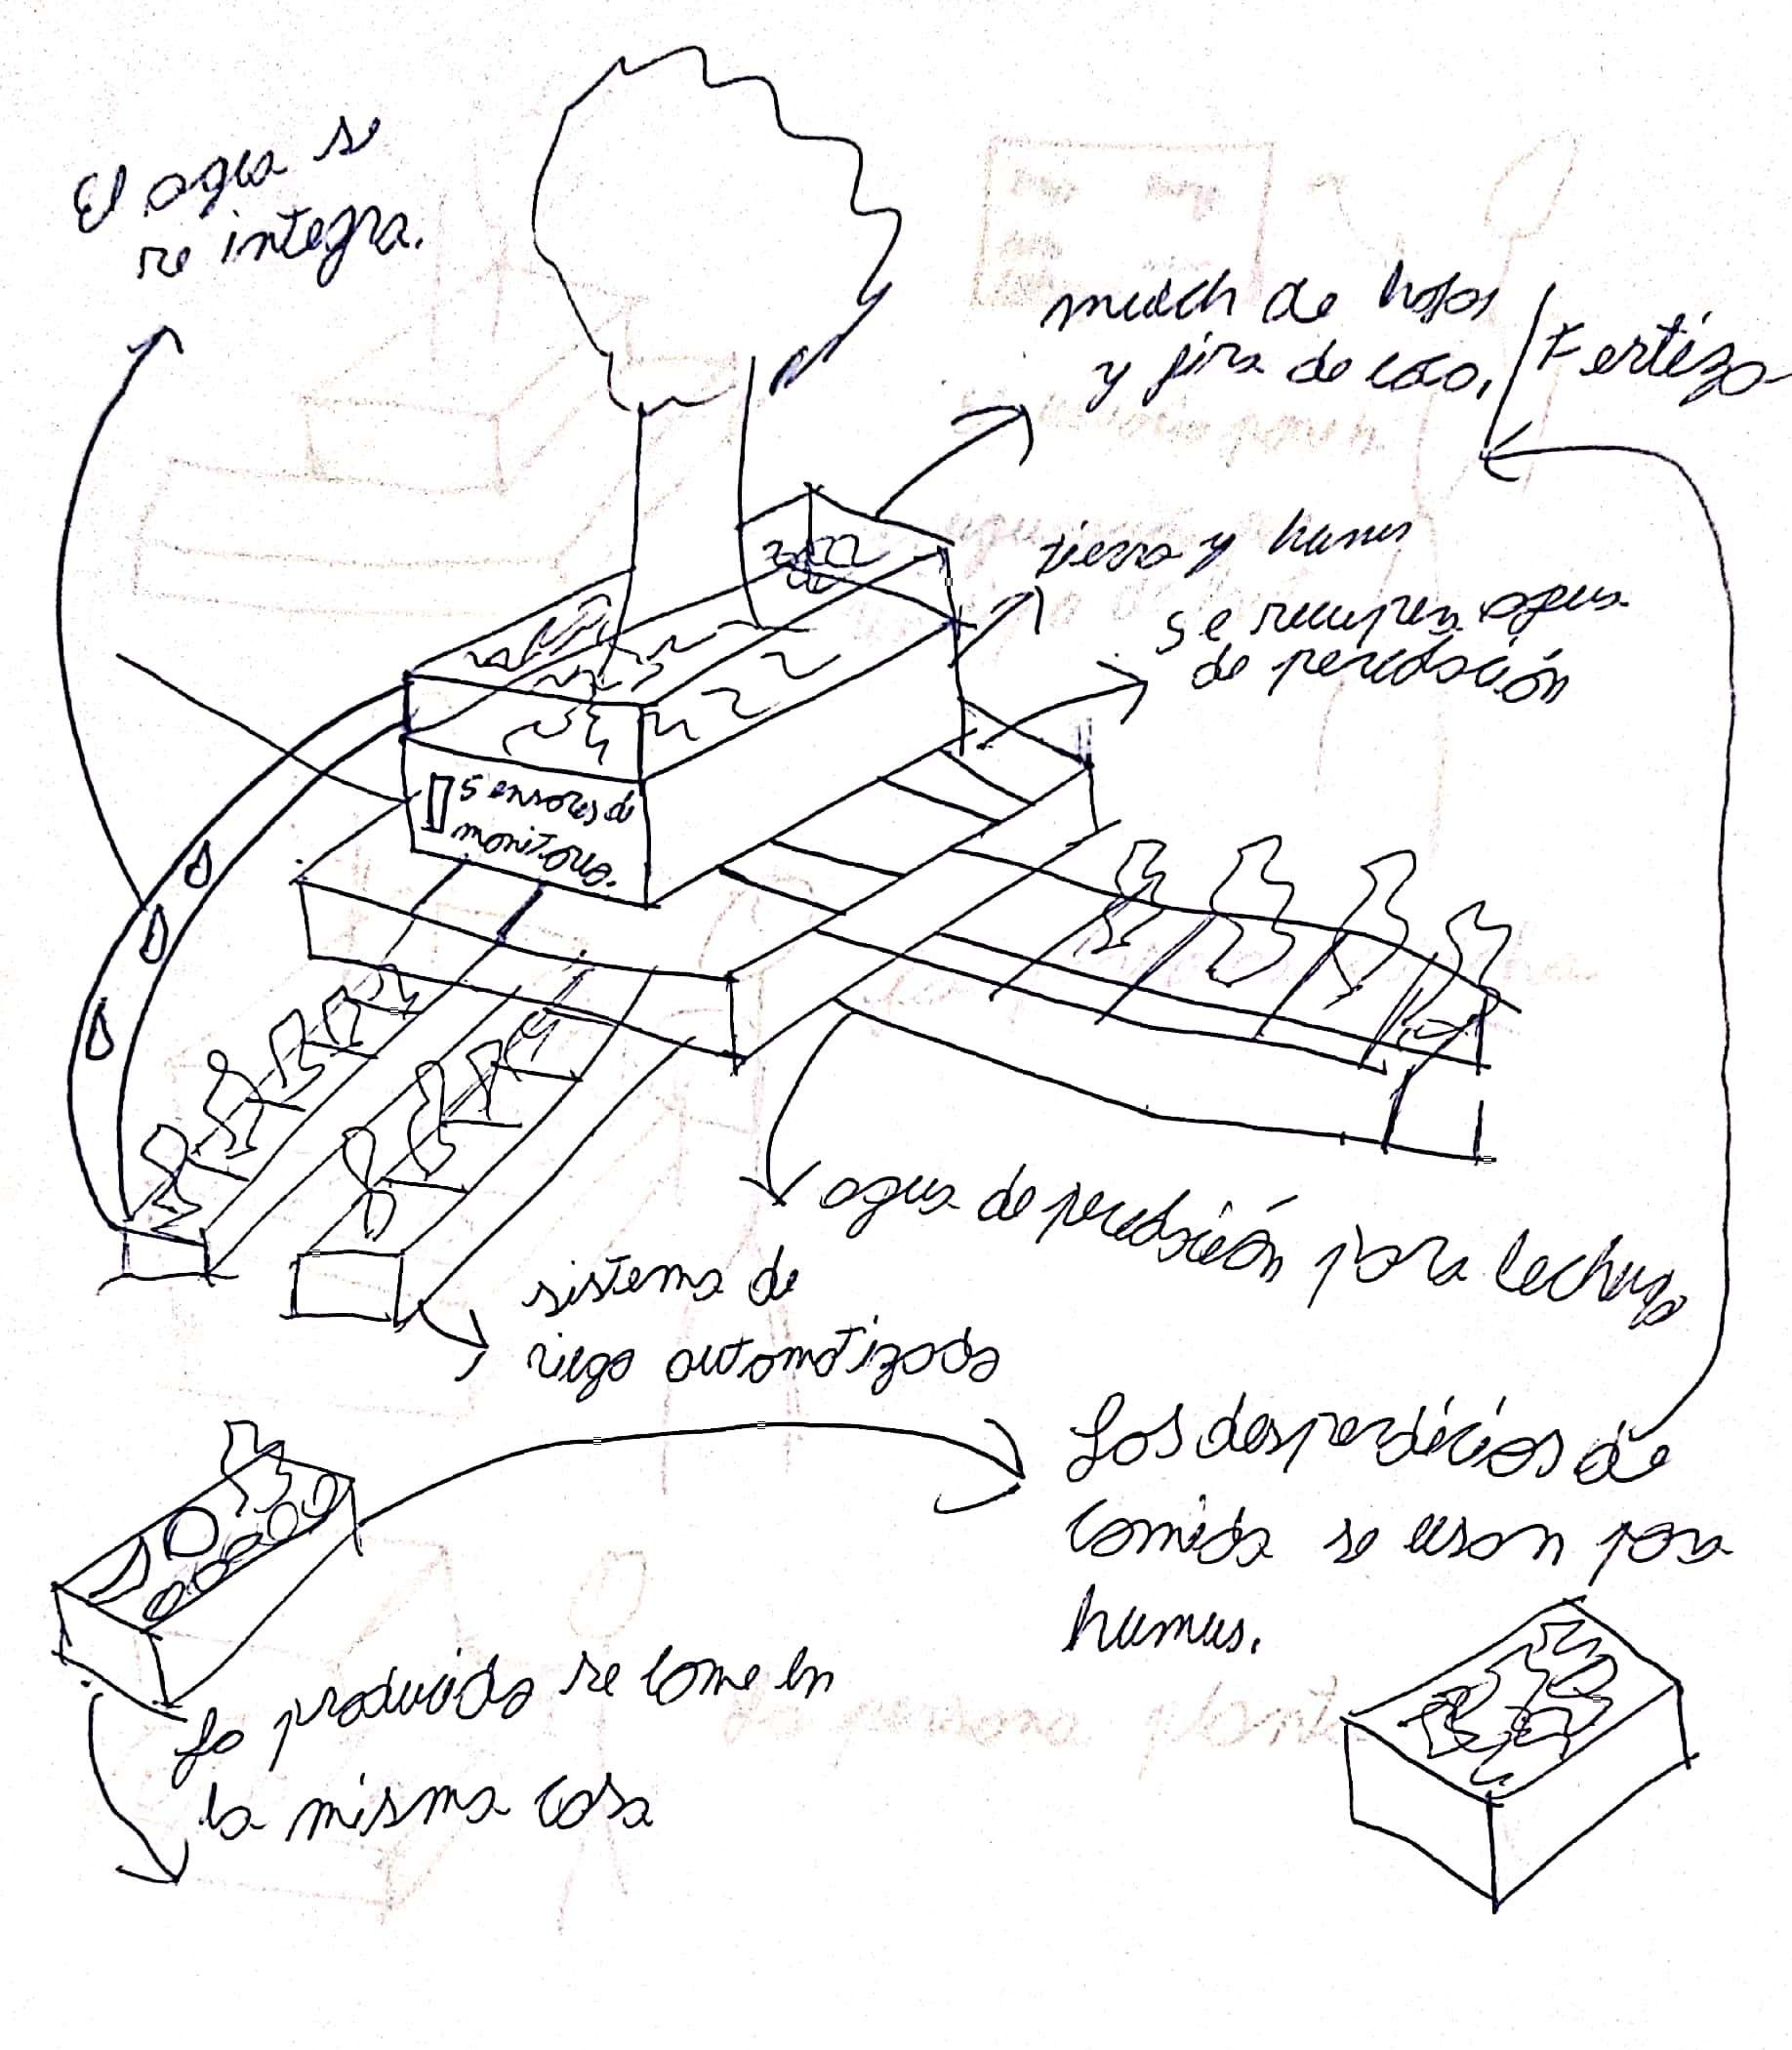 El agua se
re integra.
mulch de hojas
y fira de coco,
Fertiza
tierra y humus
se recupera agua
de percolación
sensores de
monitoreo.
agua de percolación para lechuga
sistema de
riego automatizado
Los desperdicios de
comida se usan para
humus.
Lo producido se come en
la misma casa